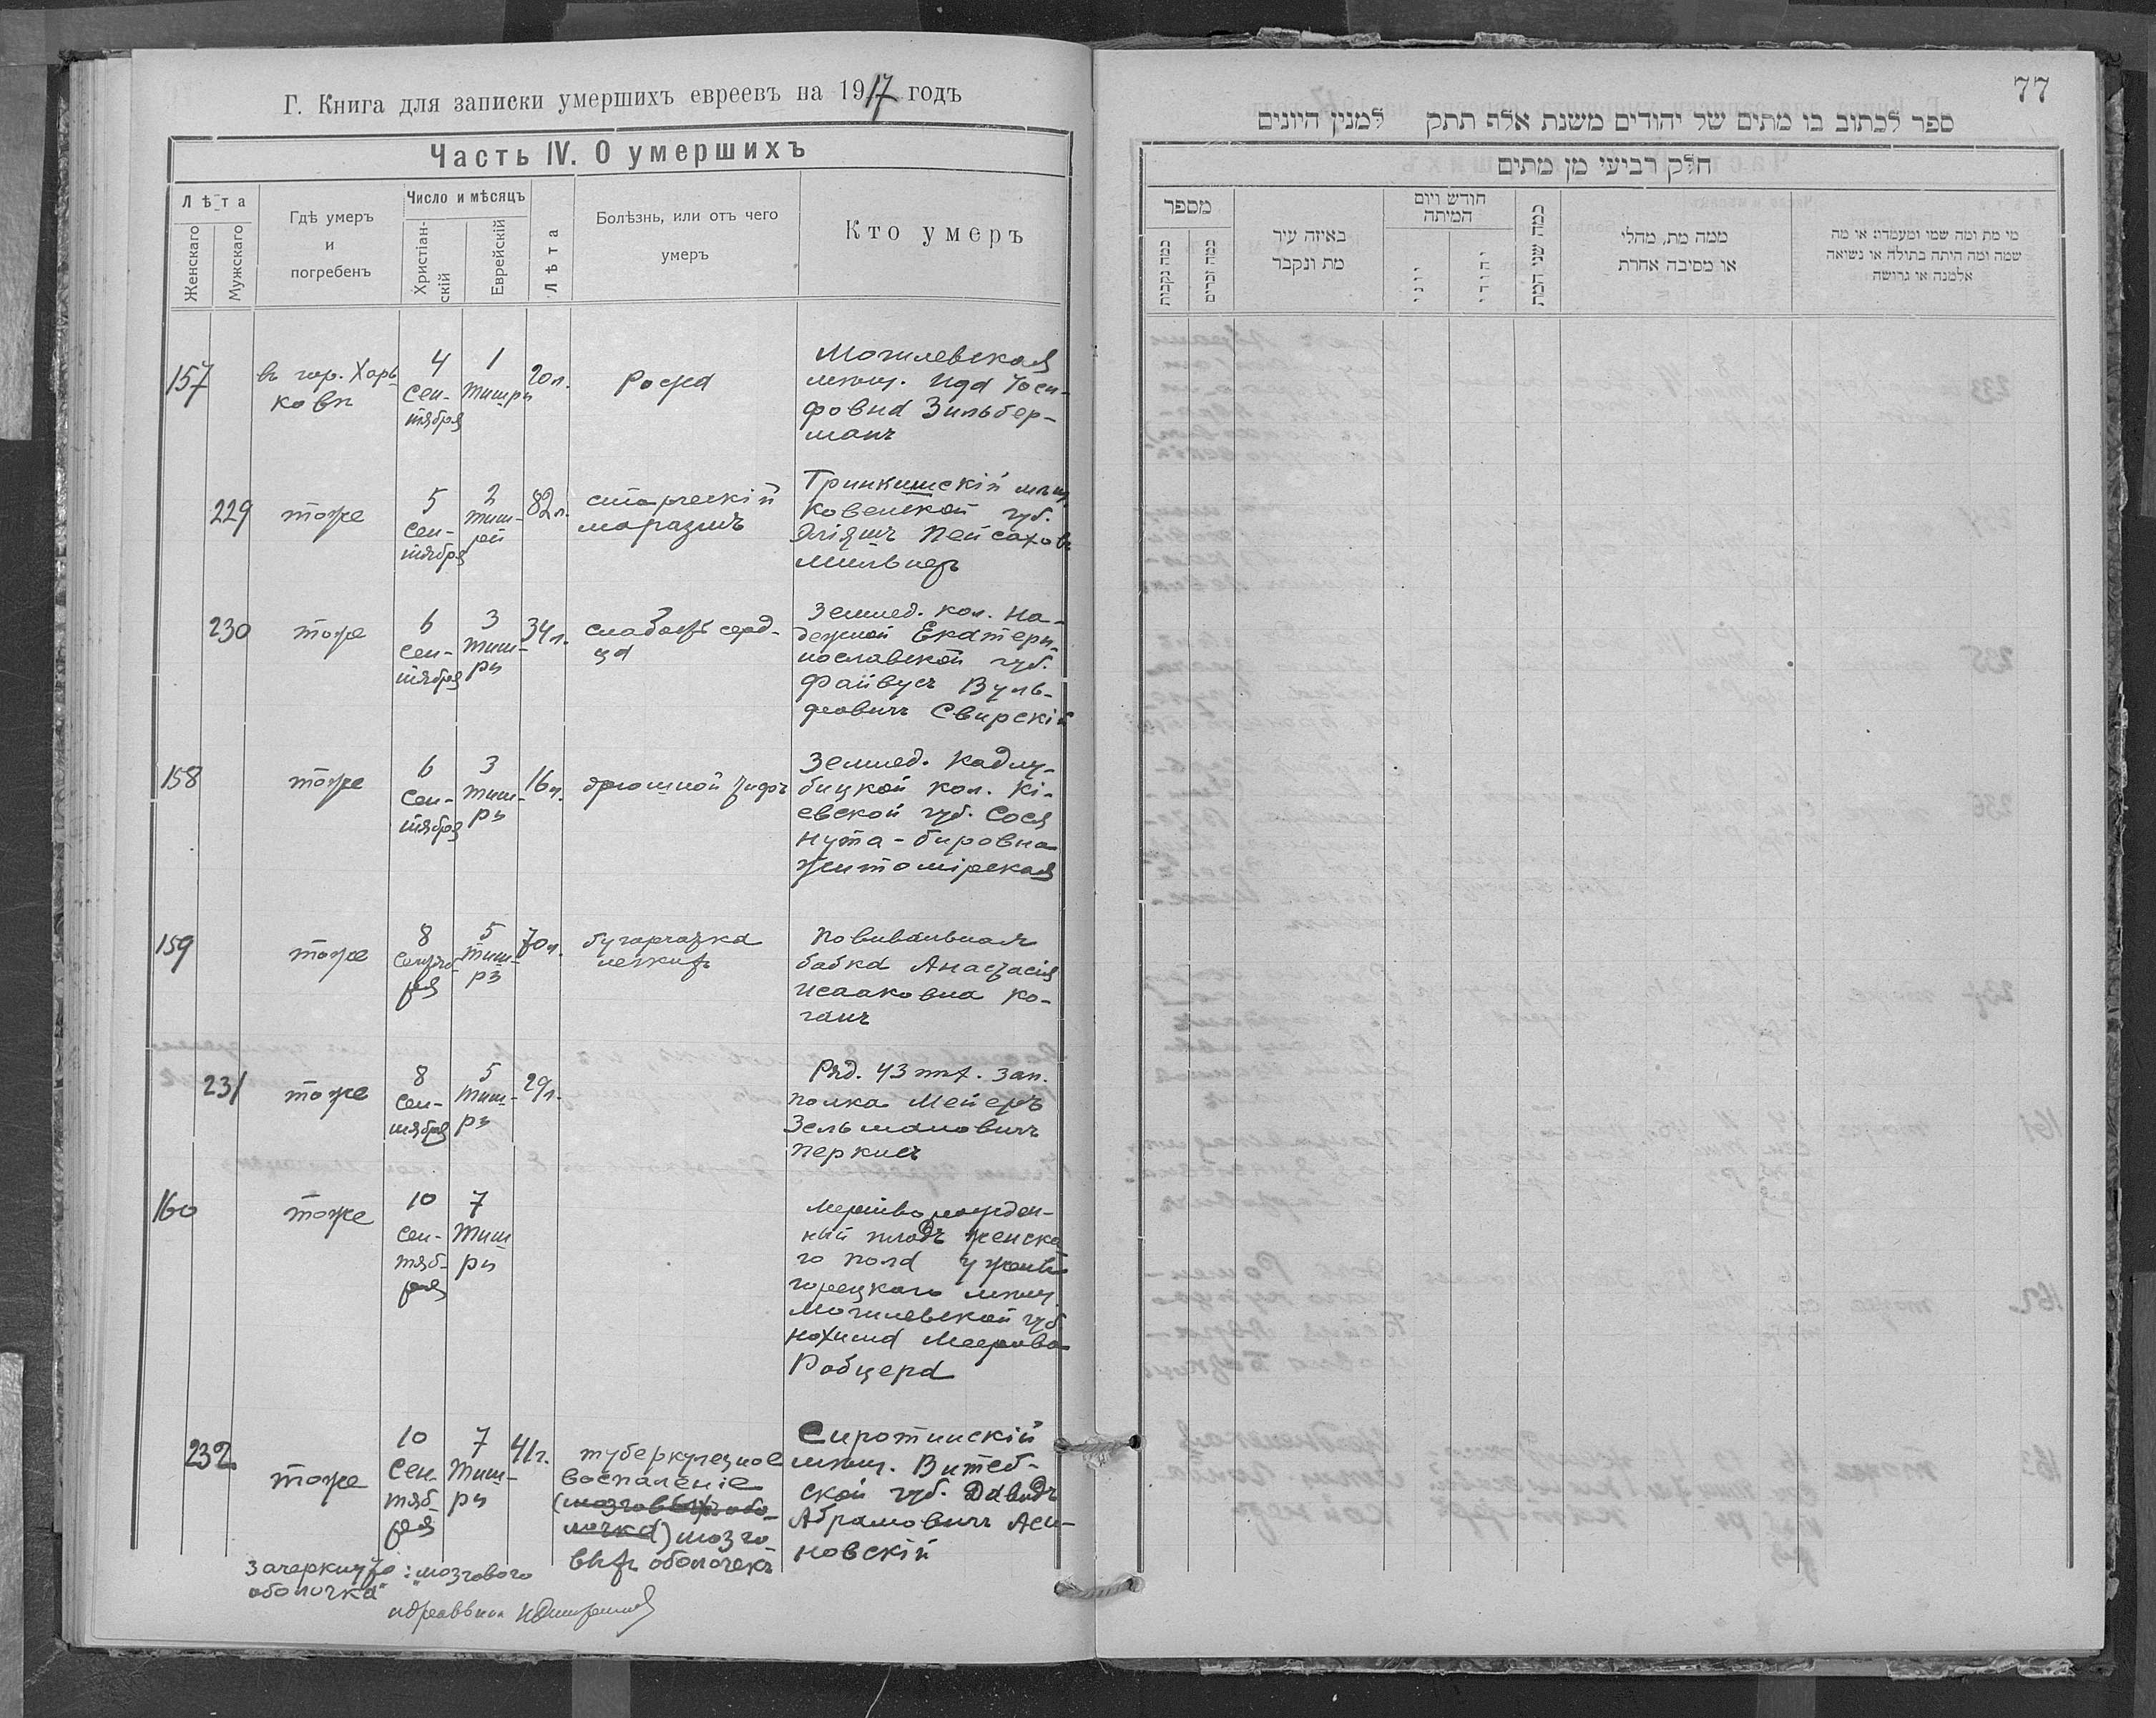 Г. Книга для записки умершихъ евреевъ на 1917 годъ
Часть IV. О умершихъ
Лѣта
Женскаго
Мужскаго
Гдѣ умеръ
и
погребенъ
Число и мѣсяцъ
Христіан-
скій
Еврейскій
Лѣта
Болѣзнь, или отъ чего
умеръ
Кто умеръ
157
въ гор. Харь-
ковѣ
4
сен-
тября
1
тишри
20 л.
рожа
Могилевская
мѣщ. Ида Іоси-
фовна Зильбер-
манъ
229
тоже
5
сен-
тября
2
тиш-
ри
82 л.
старческій
маразмъ
Тринкишскій мѣщ.
Ковенской губ.
Пейсахов.
Мильнеръ
230
тоже
6
сен-
тября
3
тиш-
ри
34 л.
слабость серд-
ца
Землед. кол. На-
дежной Екатери-
нославской губ.
Файвусъ Вуль-
фовичъ Свирскій
158
тоже
6
сен-
тября
3
тиш-
ри
16 л.
брюшной тифъ
Землед. Кадлу-
бицкой кол. Кі-
евской губ. Сося
Нута-Бировна
Житомірская
159
тоже
8
сентяб-
ря
5
тиш-
ри
70 л.
бугорчатка
легкихъ
Повивальная
бабка Анастасія
Исааковна Ко-
ганъ
231
тоже
8
сен-
тября
5
тиш-
ри
29 л.
Ряд. 43 пѣх. зап.
полка Мейеръ
Зельмановичъ
Перкисъ
160
тоже
10
сен-
тяб-
ря
7
тиш
ри
Мертворожден-
ный плодъ женска
го пола у
горецкаго мѣщ.
Могилевской губ.
Нохима Меерова
Рабцера
232
тоже
10
сен-
тяб-
ря
7
тиш-
ри
41 г.
туберкулезное
воспаленіе
(мозговыхъ обо-
лочка) мозго
выхъ оболочекъ
Сиротинскій
мѣщ. Витеб-
ской губ. Давидъ
Абрамовичъ Аси-
новскій
Зачеркнуто: „мозгового
оболочка"
77
ספר לכתוב בו מתים של יהודים משנת אלף תתק למנין היונים
חלק רביעי מן מתים
מספר
כמה נקבות
כמה זכרים
באיזה עיר
מת ונקבר
חודש ויום
המיתה
יוני
יהודי
כמה שני המת
ממה מת, מחלי
או מסיבה אחרת
מי מת ומה שמו ומעמדו: או מה
שמה ומה היתה בתולה או נשואה
אלמנה או גרושה